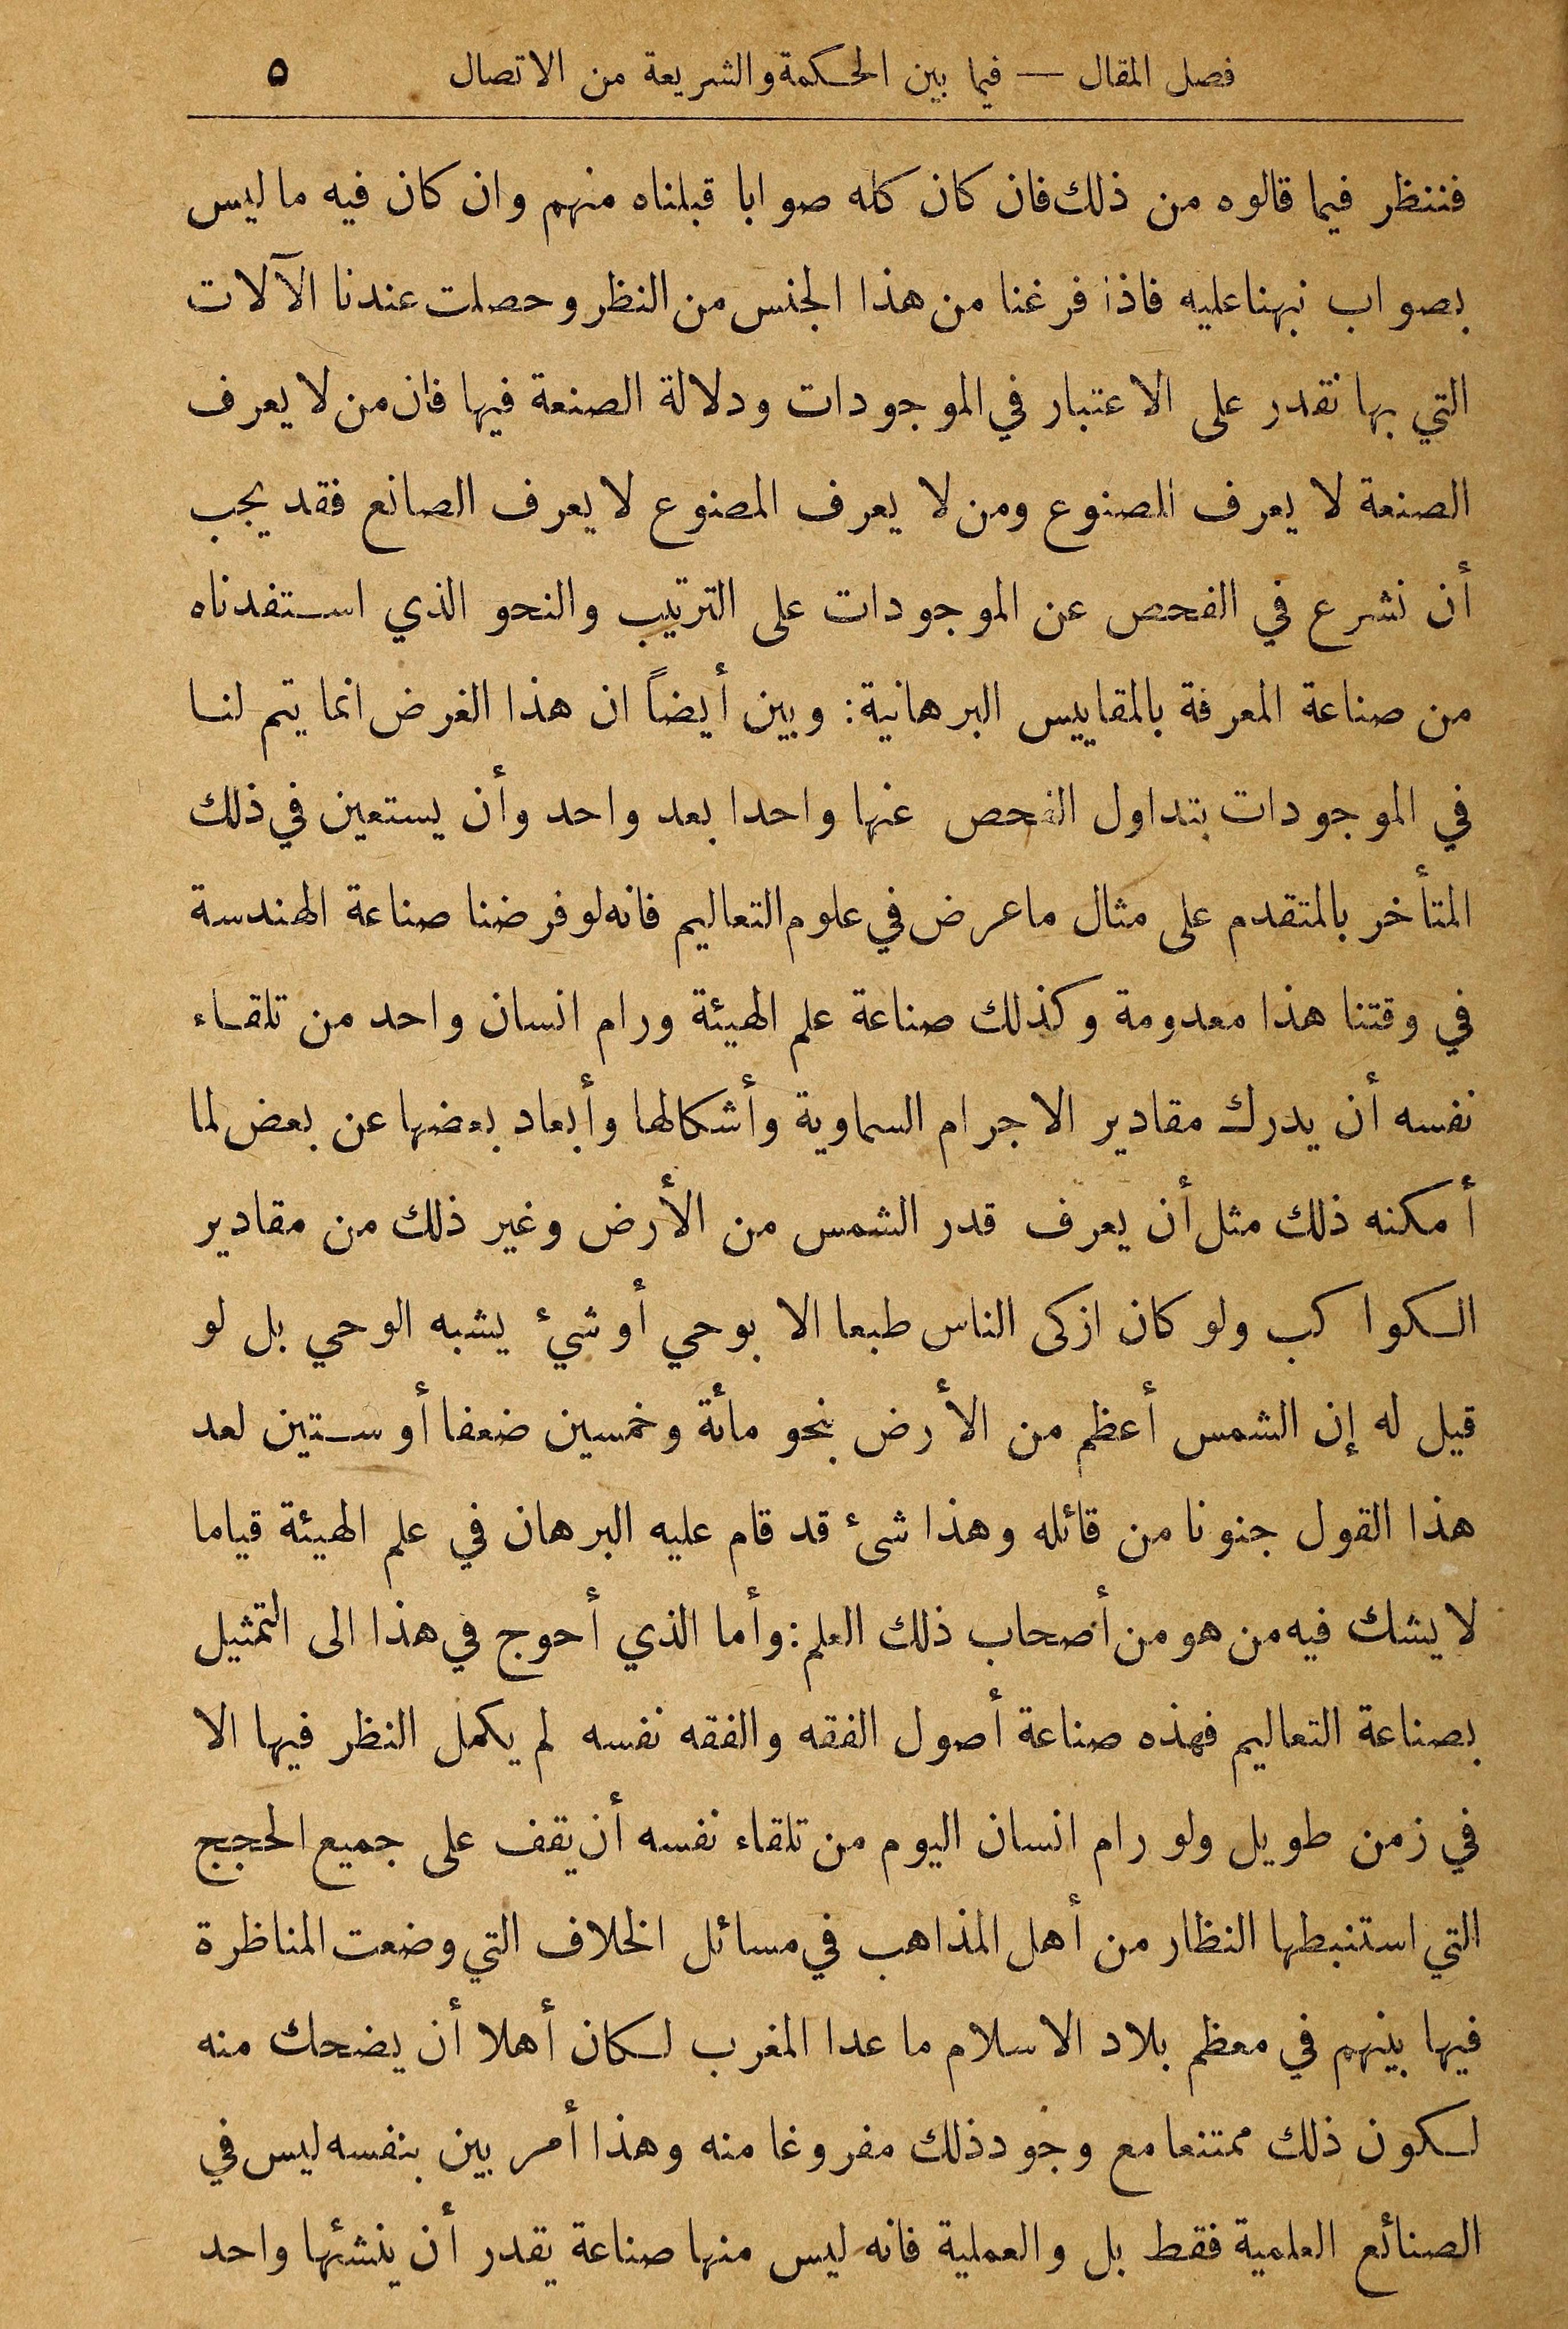 فصل المقال — فيما بين الحكمة والشريعة من الاتصال ٥
فننظر فيما قالوه من ذلك فان كان كله صوابا قبلناه منهم وان كان فيه ما ليس
بصواب نبهنا عليه فاذا فرغنا من هذا الجنس من النظر وحصلت عندنا الآلات
التي بها نقدر على الاعتبار في الموجودات ودلالة الصنعة فيها فان من لا يعرف
الصنعة لا يعرف المصنوع ومن لا يعرف المصنوع لا يعرف الصانع فقد يجب
أن نشرع في الفحص عن الموجودات على الترتيب والنحو الذي استفدناه
من صناعة المعرفة بالمقاييس البرهانية: وبين أيضاً ان هذا الغرض انما يتم لنا
في الموجودات بتداول الفحص عنها واحدا بعد واحد وأن يستعين في ذلك
المتأخر بالمتقدم على مثال ما عرض في علوم التعاليم فانه لو فرضنا صناعة الهندسة
في وقتنا هذا معدومة وكذلك صناعة علم الهيئة ورام انسان واحد من تلقاء
نفسه أن يدرك مقادير الاجرام السماوية وأشكالها وأبعاد بعضها عن بعض لما
أمكنه ذلك مثل أن يعرف قدر الشمس من الأرض وغير ذلك من مقادير
الكواكب ولو كان ازكى الناس طبعا الا بوحي أو شيء يشبه الوحي بل لو
قيل له إن الشمس أعظم من الأرض بنحو مأئة وخمسين ضعفا أو ستين لعد
هذا القول جنونا من قائله وهذا شىء قد قام عليه البرهان في علم الهيئة قياما
لا يشك فيه من هو من أصحاب ذلك العلم: وأما الذي أحوج في هذا الى التمثيل
بصناعة التعاليم فهذه صناعة أصول الفقه والفقه نفسه لم يكمل النظر فيها الا
في زمن طويل ولو رام انسان اليوم من تلقاء نفسه أن يقف على جميع الحجج
التي استنبطها النظار من أهل المذاهب في مسائل الخلاف التي وضعت المناظرة
فيها بينهم في معظم بلاد الاسلام ما عدا المغرب لكان أهلا أن يضحك منه
لكون ذلك ممتنعا مع وجود ذلك مفروغا منه وهذا أمر بين بنفسه ليس في
الصنائع العلمية فقط بل والعملية فانه ليس منها صناعة يقدر أن ينشئها واحد